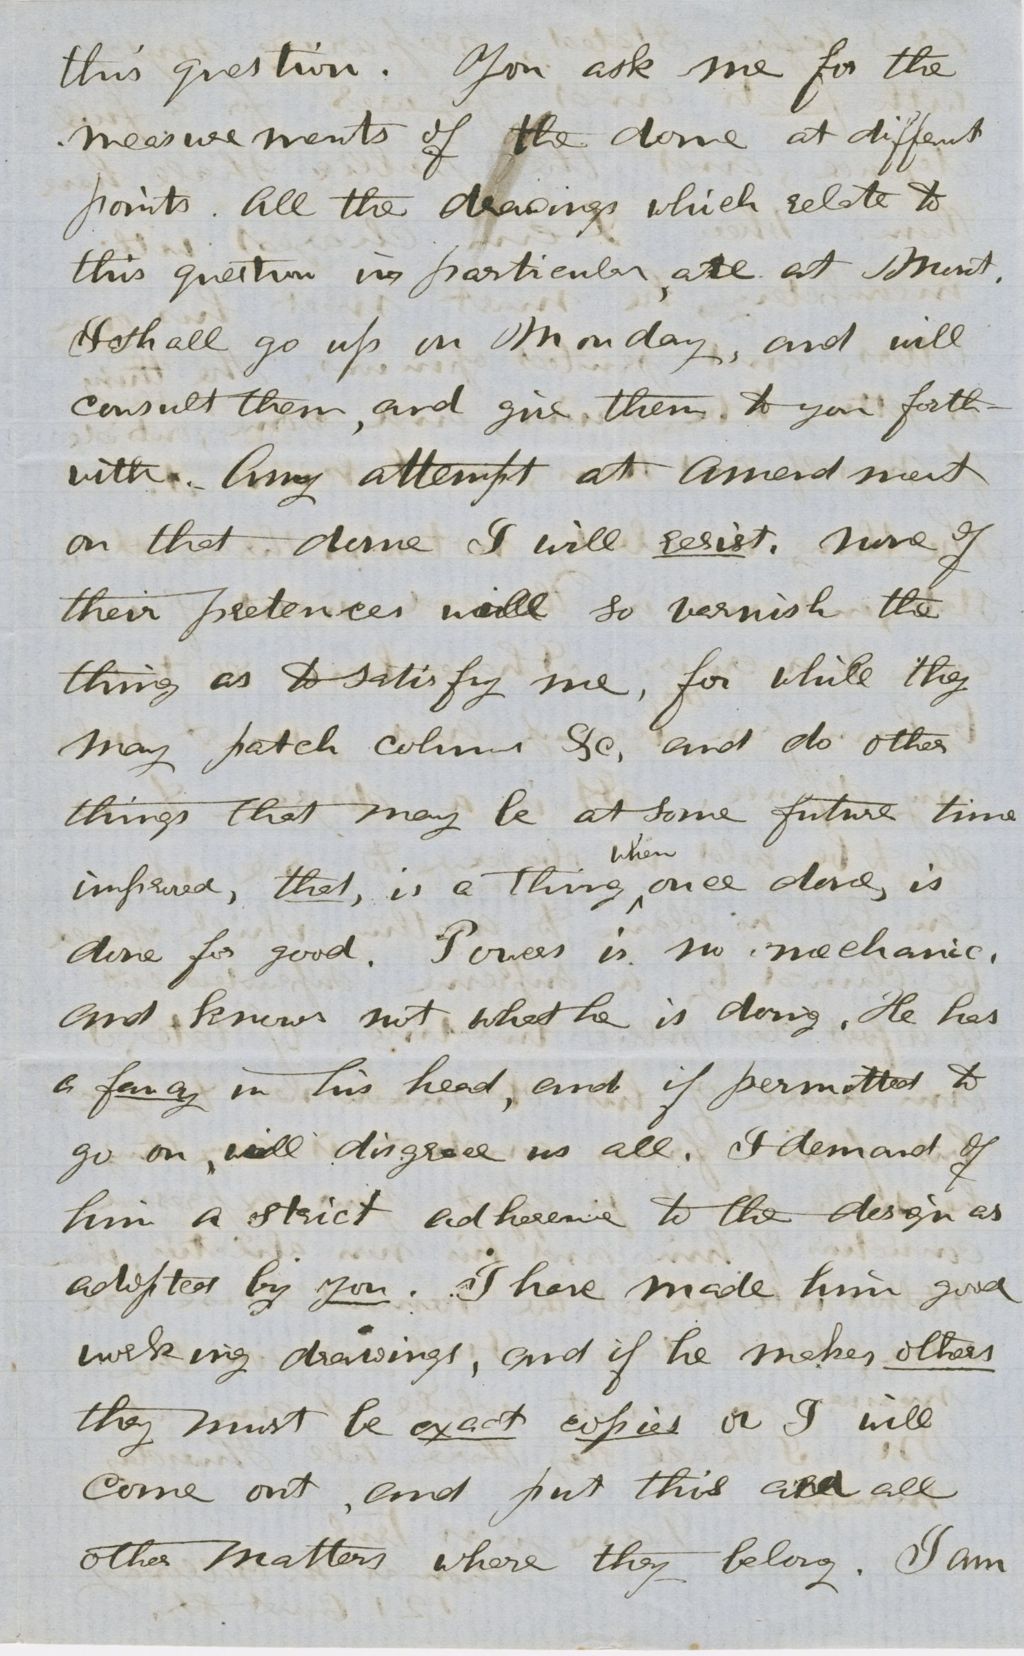 this question. You ask me for the
measurements of the dome at different
points. All the drawings which relate to
this question in particular, are at Mount.
I shall go up on Monday, and will
consult them, and give them to you forth-
with. Any attempt at amendment
on that dome I will resist. None of
their pretences will so varnish the
thing as to satisfy me, for while they
may patch colums &c, and do other
things that may be at some future time
improved, that, is a thing when once done, is
done for good. Powers is no mechanic,
and knows not what he is doing. He has
a fancy in his head, and if permitted to
go on, will disgrace us all. I demand of
him a strict adherence to the design as
adopted by you. I have made him good
working drawings, and if he makes others
they must be exact copies or I will
come out, and put this and all
other matters where they belong. I am